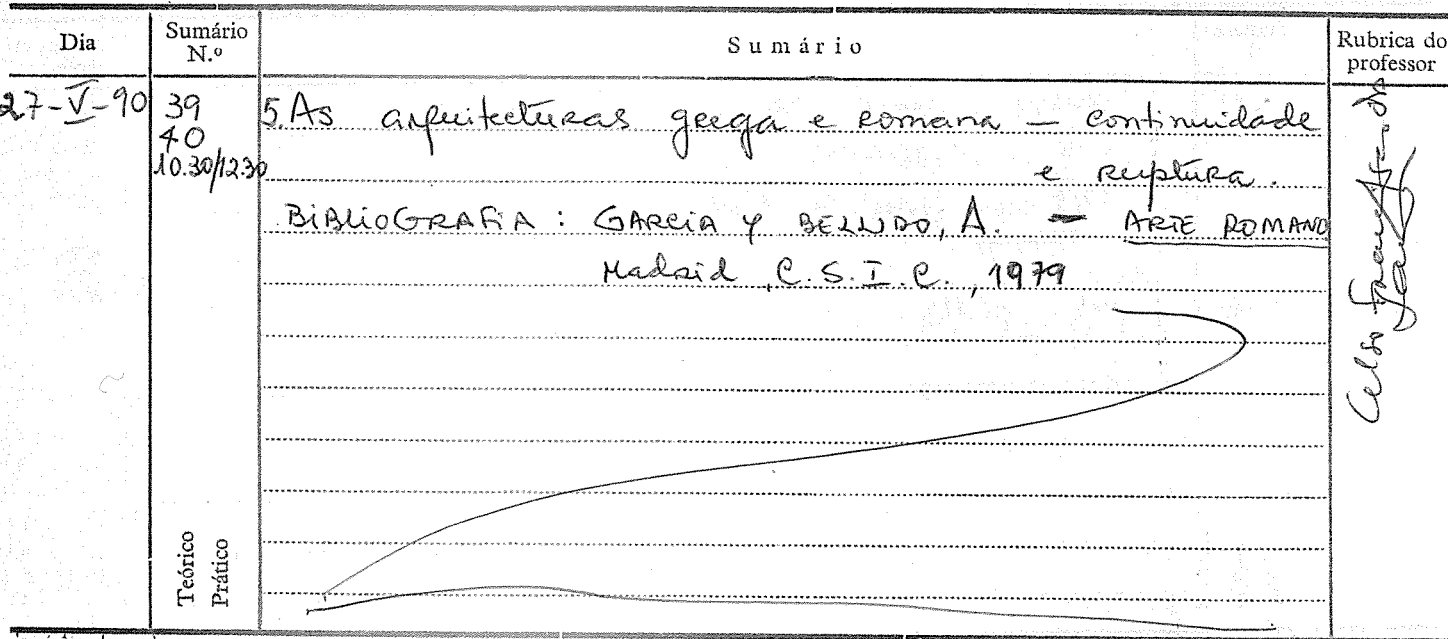 Dia
Sumário N.º
Sumário
Rubrica do professor
27-V-90
39
40
10.30/12.30
5. As arquitecturas grega e romana — continuidade
e ruptura.
BIBLIOGRAFIA: GARCIA Y BELLIDO, A. — ARTE ROMANO
Madrid, C.S.I.C., 1979
Celso
Teórico
Prático